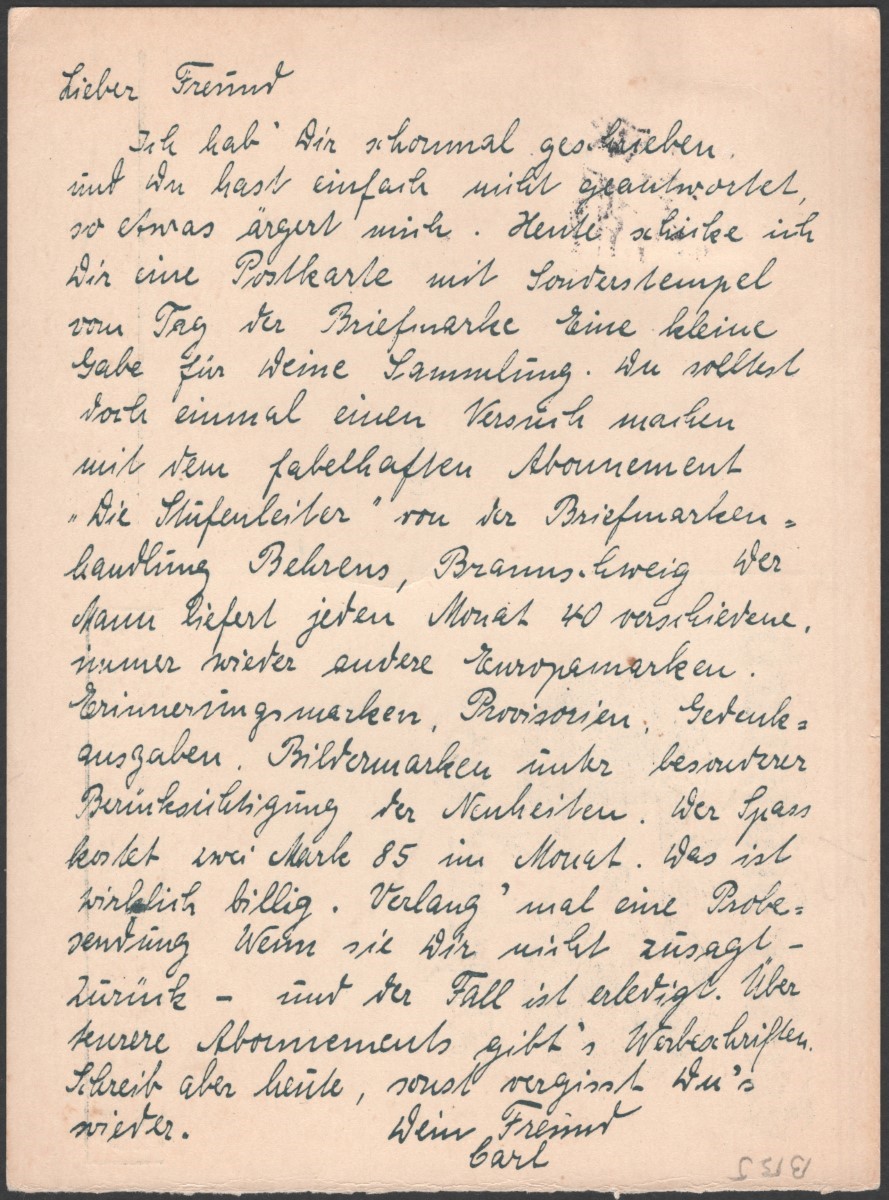 Lieber Freund
Ich hab' Dir schonmal geschrieben.
und Du hast einfach nicht geantwortet,
so etwas ärgert mich. Heute schicke ich
Dir eine Postkarte mit Sonderstempel
vom Tag der Briefmarke Eine kleine
Gabe für Deine Sammlung. Du solltest
doch einmal einen Versuch machen
mit dem fabelhaften Abonnement
„Die Stufenleiter" von der Briefmarken=
handlung Behrens, Braunschweig Der
Mann liefert jeden Monat 40 verschiedene,
immer wieder andere Europamarken.
Erinnerungsmarken, Provisorien, Gedenk=
ausgaben, Bildermarken unter besonderer
Berücksichtigung der Neuheiten. Der Spass
kostet zwei Mark 85 im Monat. Das ist
wirklich billig. Verlang' mal eine Probe=
sendung Wenn sie Dir nicht zusagt -
zurück - und der Fall ist erledigt. Über
teurere Abonnements gibt's Werbeschriften.
Schreib aber heute, sonst vergisst Du's
wieder. Dein Freund
Carl